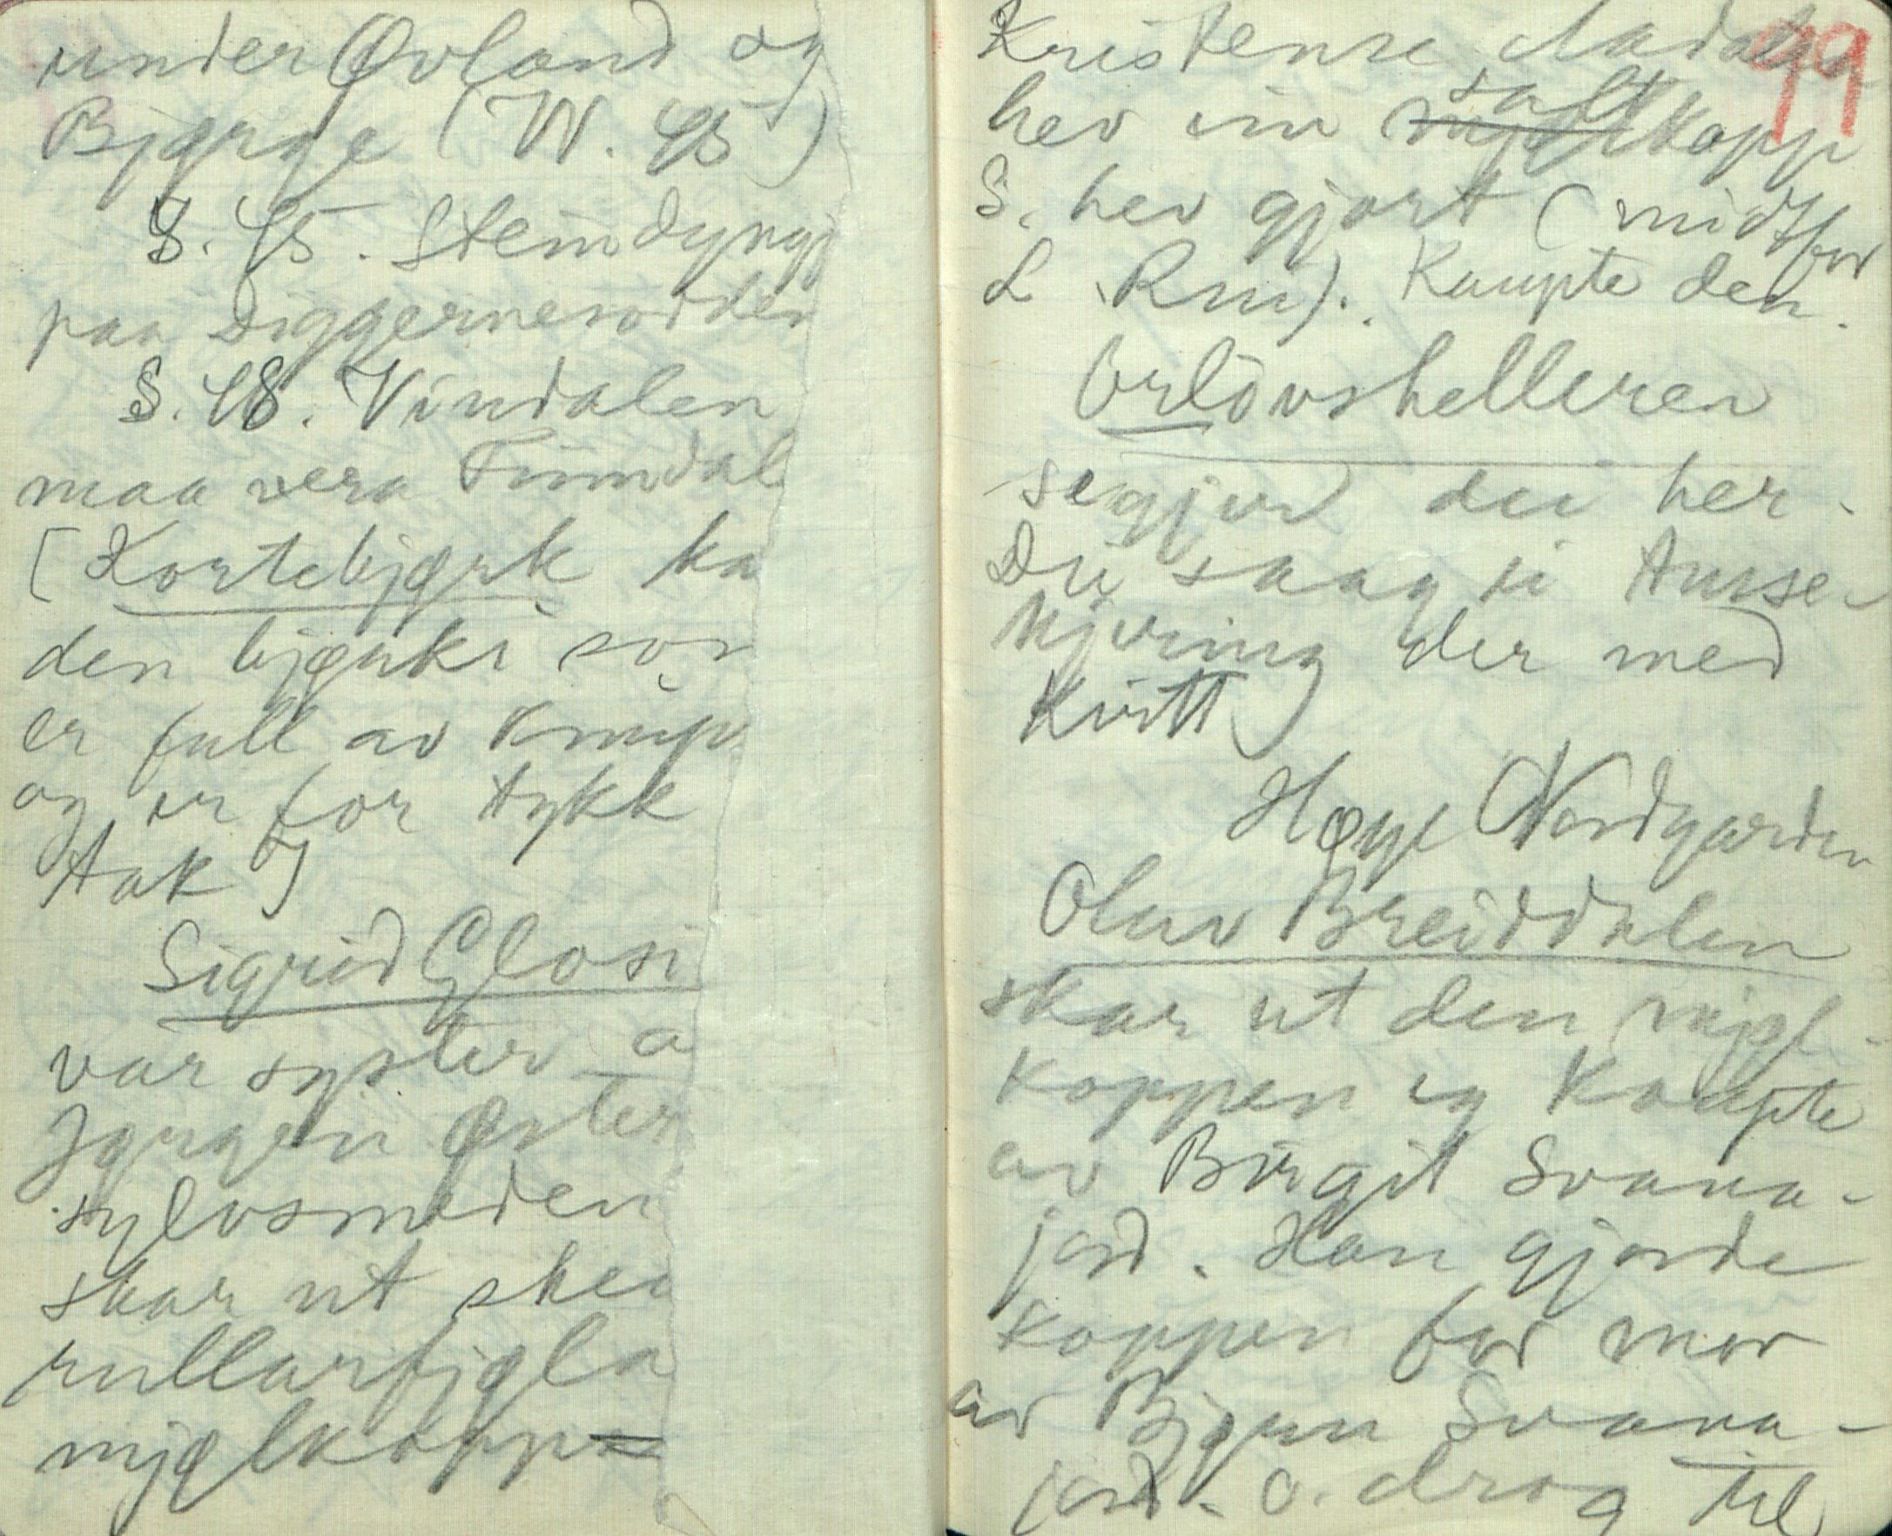 under Øvland og
Bjørge (W. 45)
S. 45. Steindyngj
paa Diggernesodden
S. 48. Vindalen
maa vera Finndal
[Kortebjørk ka
den bjørki som
er full av knup
og er for tykk
tak]
Sigrid Glosi
var syster a
Jørgen Øster
sylvsmeden
skar ut skei
rullarfjøla
mjølkopp
99
Kristense Aadal
hev ein mjøl salt kopp
S. hev gjort (midt for
L. Rui). Kaupte den.
Orlovshelleren
segjer dei her.
Dei saag ei Husse-
kjering der med
kvitt
Høye Nordgarden
Olav Breiddalen
skar ut den mjøl-
koppen eg kaupte
av Birgit Svana-
jord. Han gjorde
koppen for mor
av Bjørn Svana-
jord. O. drog til